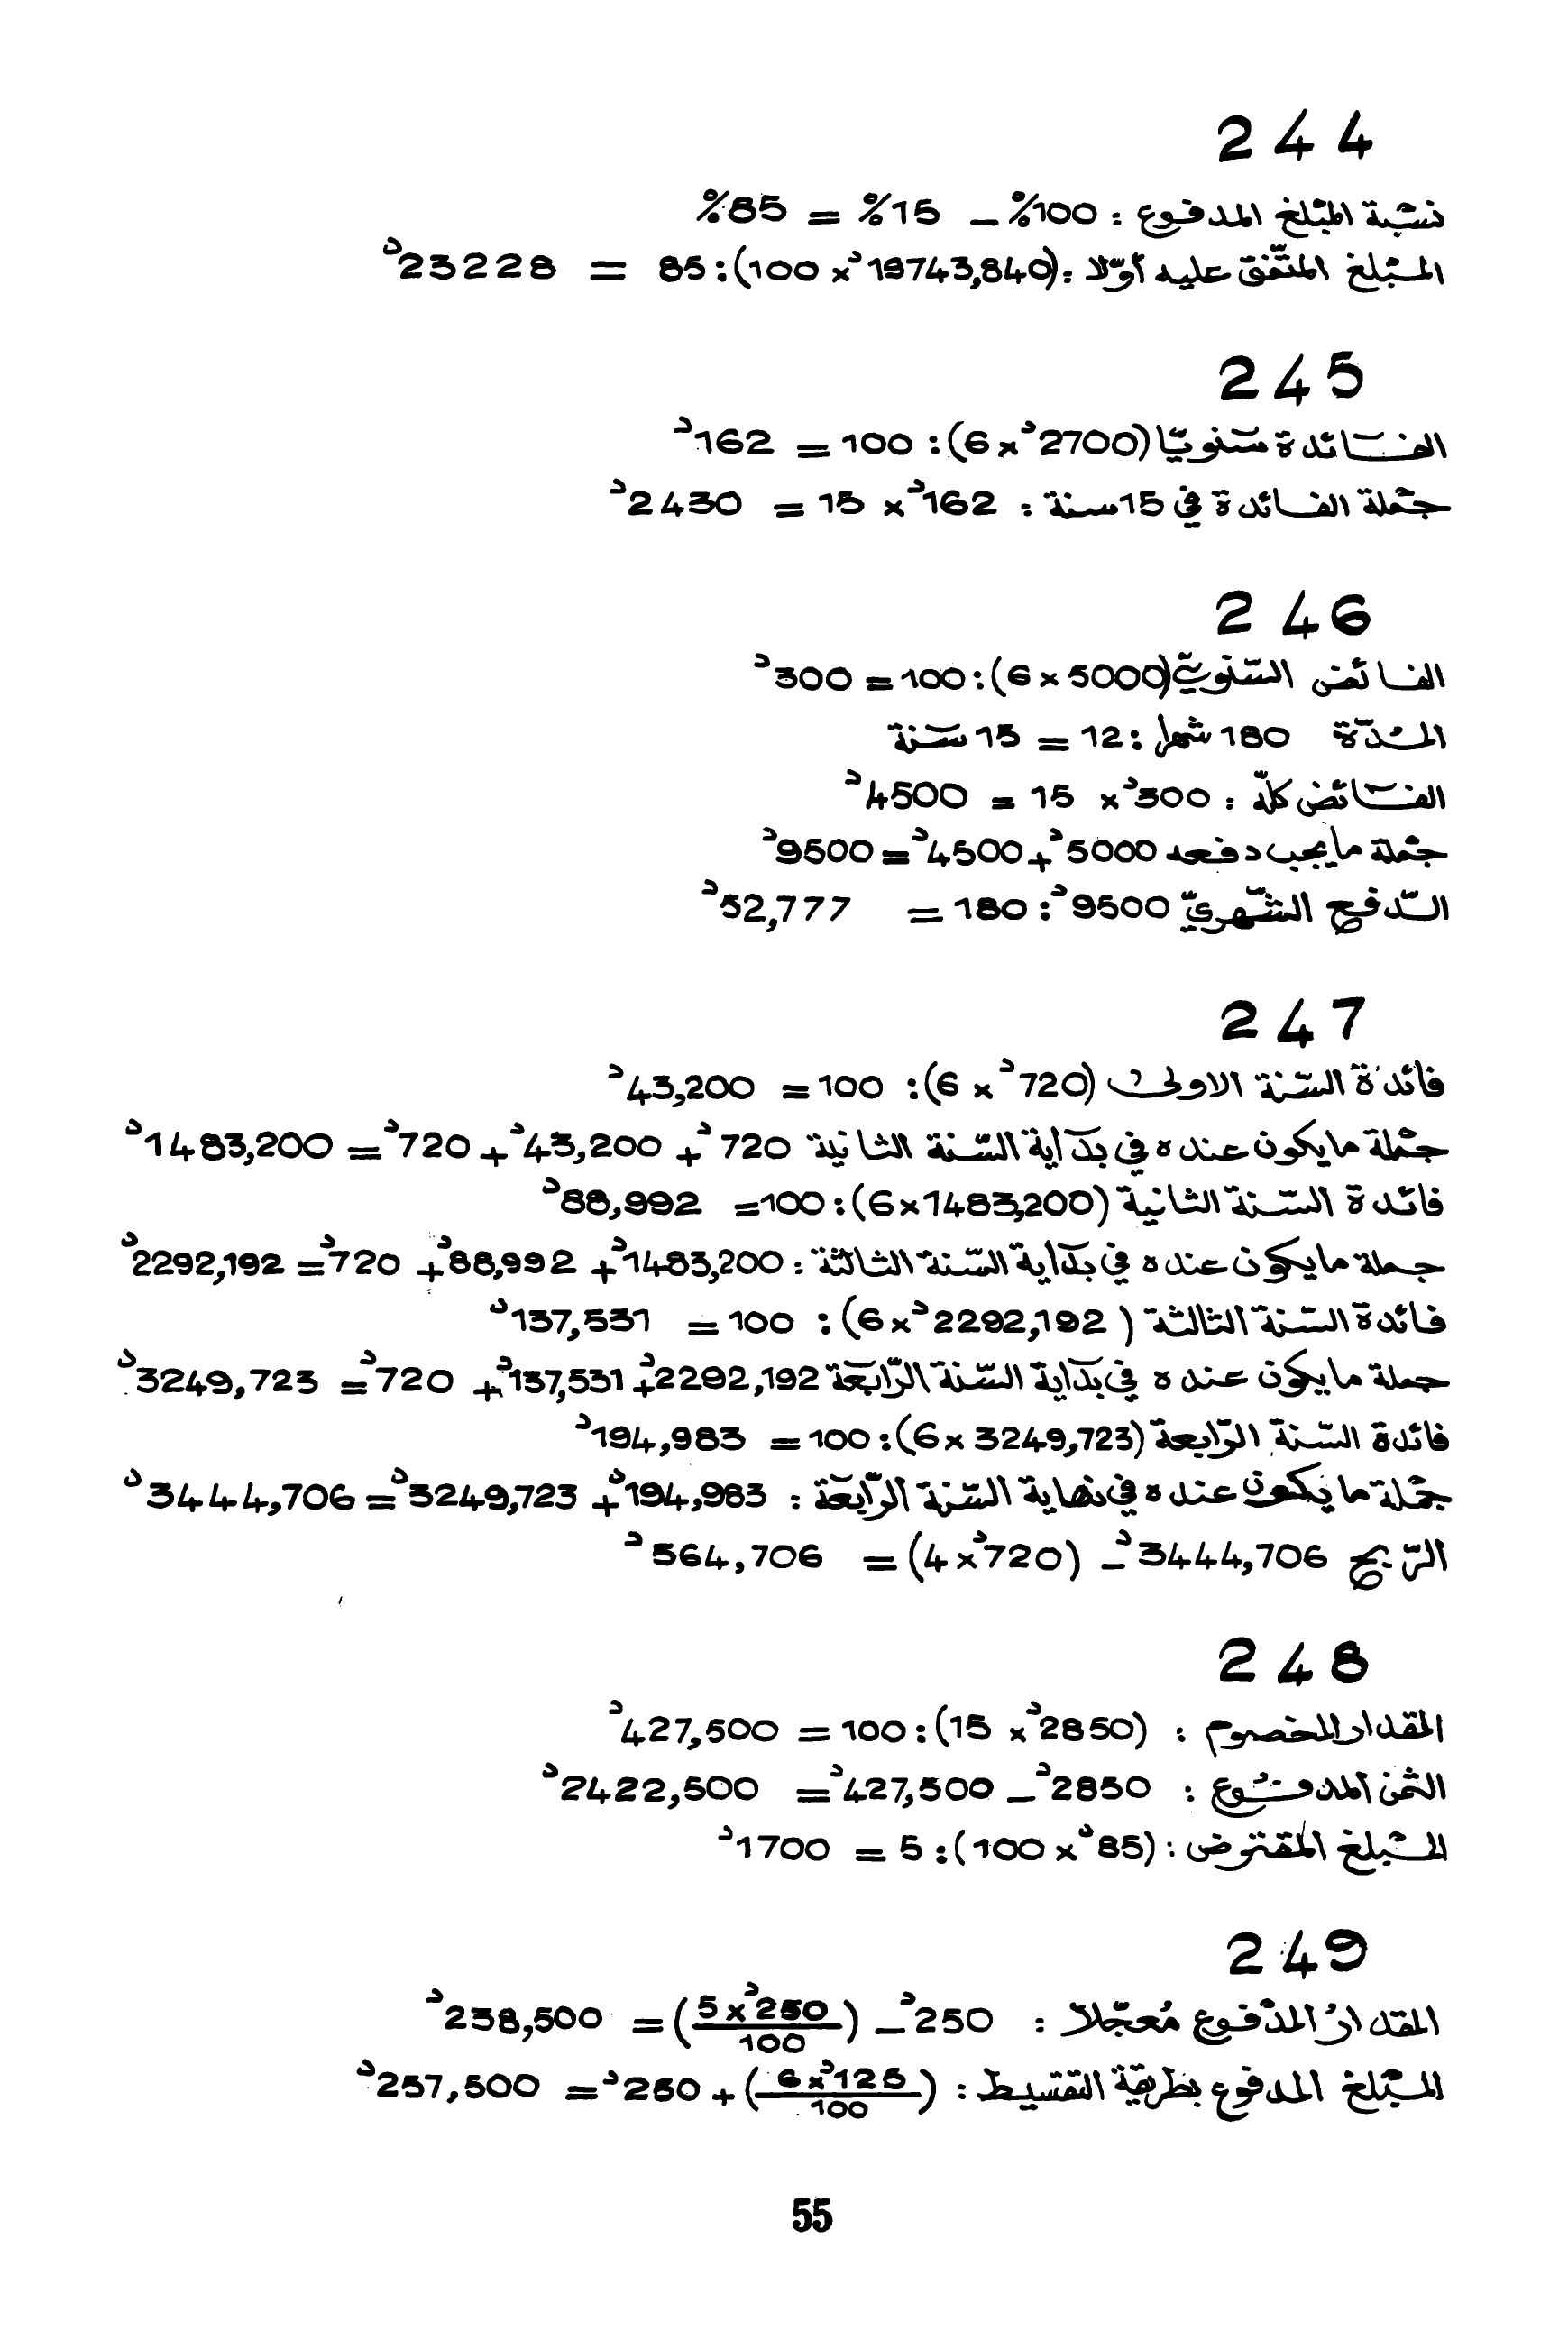 244
نسبة المبلغ المدفوع : 100% _ 15% = 85%
المبلغ المتفق عليه أوّلا : (19743,840د x 100) : 85 = 23228د
245
الفائدة سنويّا (2700د x 6) : 100 = 162د
جملة الفائدة في 15 سنة : 162د x 15 = 2430د
246
الفائض السّنويّ (5000 x 6) : 100 = 300د
المدّة 180 شهرا : 12 = 15 سنة
الفائض كلّه : 300د x 15 = 4500د
جملة ما يجب دفعه 5000د + 4500د = 9500د
الدّفع الشّهريّ 9500د : 180 = 52,777د
247
فائدة السّنة الاولى (720د x 6) : 100 = 43,200د
جملة ما يكون عنده في بداية السّنة الثانية 720د + 43,200د + 720د = 1483,200د
فائدة السّنة الثانية (1483,200 x 6) : 100 = 88,992د
جملة ما يكون عنده في بداية السّنة الثالثة : 1483,200د + 88,992د + 720د = 2292,192د
فائدة السّنة الثالثة (2292,192د x 6) : 100 = 137,531د
جملة ما يكون عنده في بداية السّنة الرّابعة 2292,192د + 137,531د + 720د = 3249,723د
فائدة السّنة الرّابعة (3249,723 x 6) : 100 = 194,983د
جملة ما يكون عنده في نهاية السّنة الرّابعة : 194,983د + 3249,723د = 3444,706د
الرّبح 3444,706د _ (720د x 4) = 564,706د
248
المقدار المخصوم : (2850د x 15) : 100 = 427,500د
الثمن المدفوع : 2850د _ 427,500د = 2422,500د
المبلغ المقترض : (85د x 100) : 5 = 1700د
249
المقدارُ المدفوع مُعجّلا : 250د _ (250د x 5 / 100) = 238,500د
المبلغ المدفوع بطريقة التقسيط : (125د x 6 / 100) + 250د = 257,500د
55